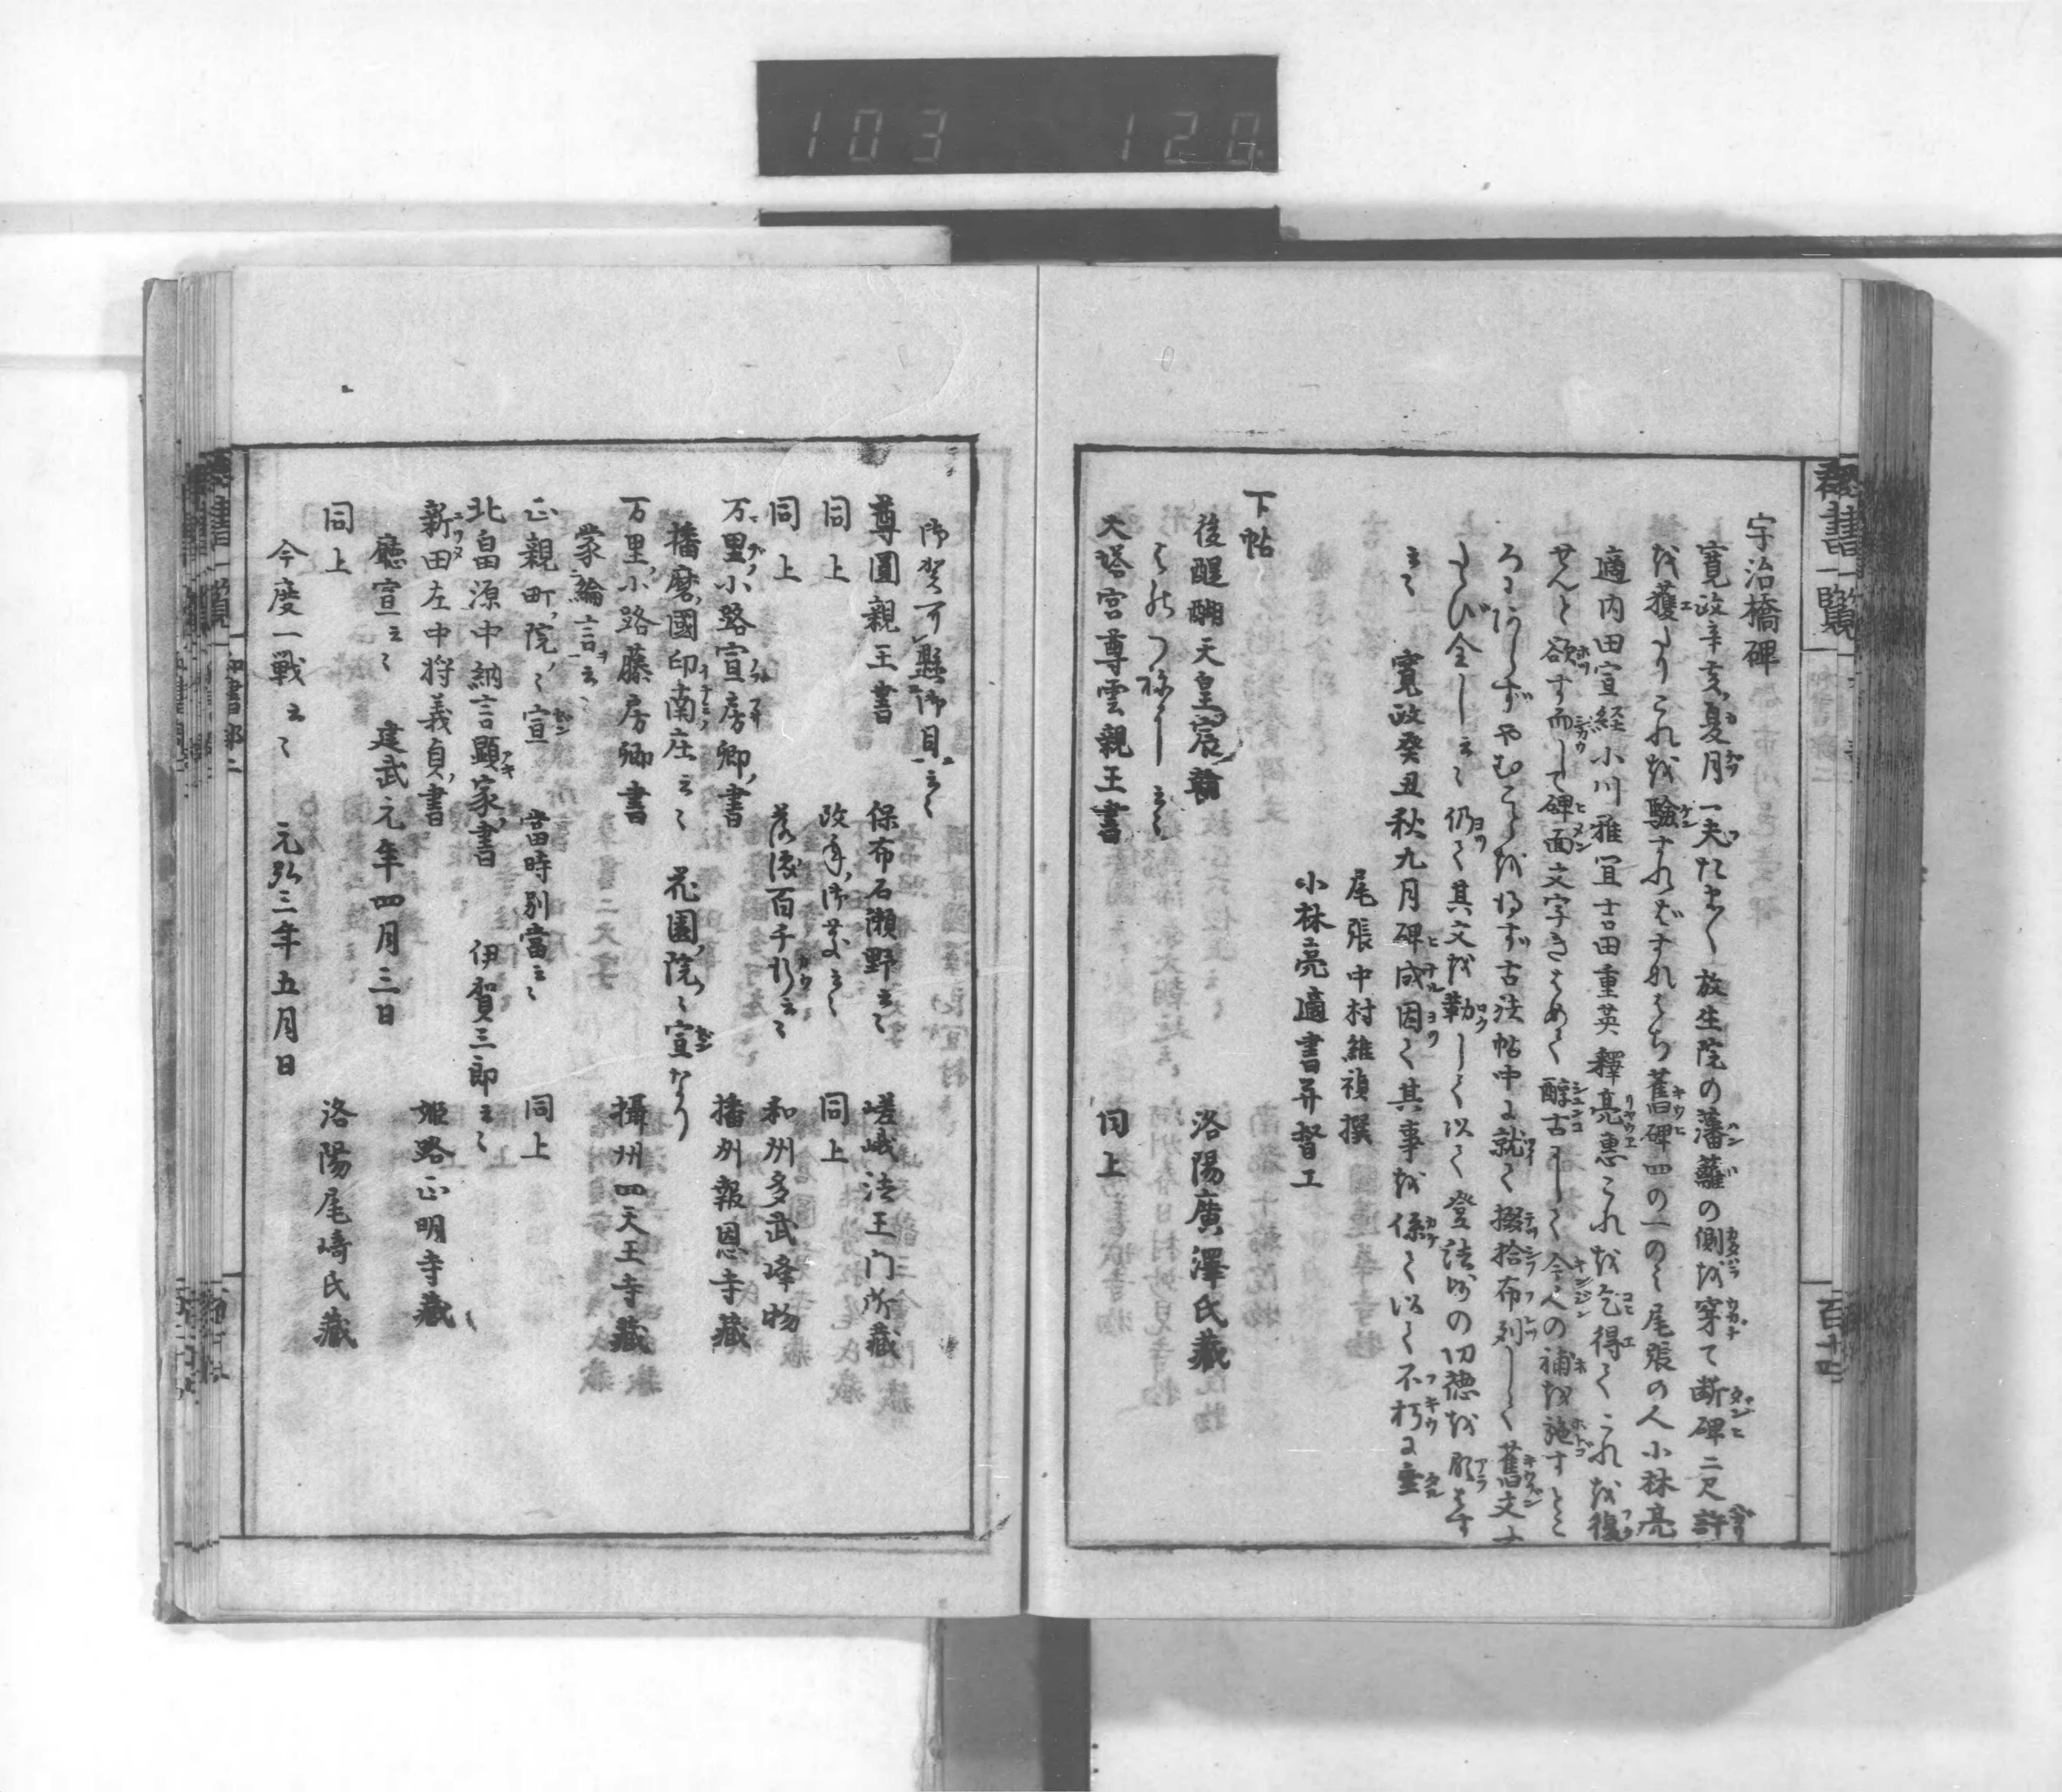 103 128
群書一覧
百十四
宇治橋碑
寛政辛亥夏月一夫たま〱放生院の藩籬の側を穿て断碑二尺許
を獲たりこれを験すれバすなはち舊碑四の一の〱尾張の人小林亮
適内田宣経小川雅宣吉田重英釋亮恵これを乞得てこれを復
せんと欲す而して碑面文字きはめて醇古にして今人の補を施すとこ
ろにあらずやむことを得ず古法帖中に就て掇拾布列して舊文
たび全しと云〻仍て其文を勒して以て登法師の功徳を
云〻 寛政癸丑秋九月碑成因て其事を係て以て不朽に垂
尾張中村維禎撰
小林亮適書并督工
下帖
後醍醐天皇宸翰 洛陽廣澤氏藏
云〻
大塔宮尊雲親王書 同上
御目云〻
尊圓親王書 保布石瀬野云〻 嵯峨法王门所藏
同上 云〻 同上
同上 百千 云〻 和州多武峰物
万里小路宣房卿書 播州報恩寺藏
播磨國印南庄云〻 花園院〻宣なり
万里小路藤房卿書 攝州四天王寺藏
蒙綸言云〻
正親町院〻宣 當時別當云〻 同上
北畠源中納言顯家書 伊賀三郎云〻
新田左中将義貞書 姫路正明寺藏
聴宣云〻 建武元年四月三日
同上 洛陽尾崎氏藏
今度一戰云〻 元弘三年五月日